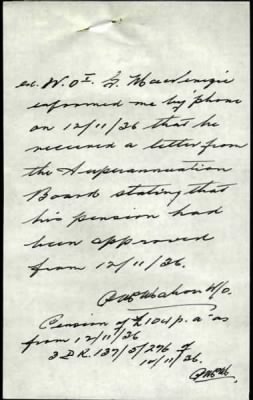 W.O.I. G. Mackenzie
informed me by phone
on 12/11/26 that he
received a letter from
the Superannuation
Board stating that
his pension had
been approved
from 12/11/26.
W/O.
Pension of £104 p.a. as
from 12/11/26
3 D.R. 137/3/276 of
10/11/26.